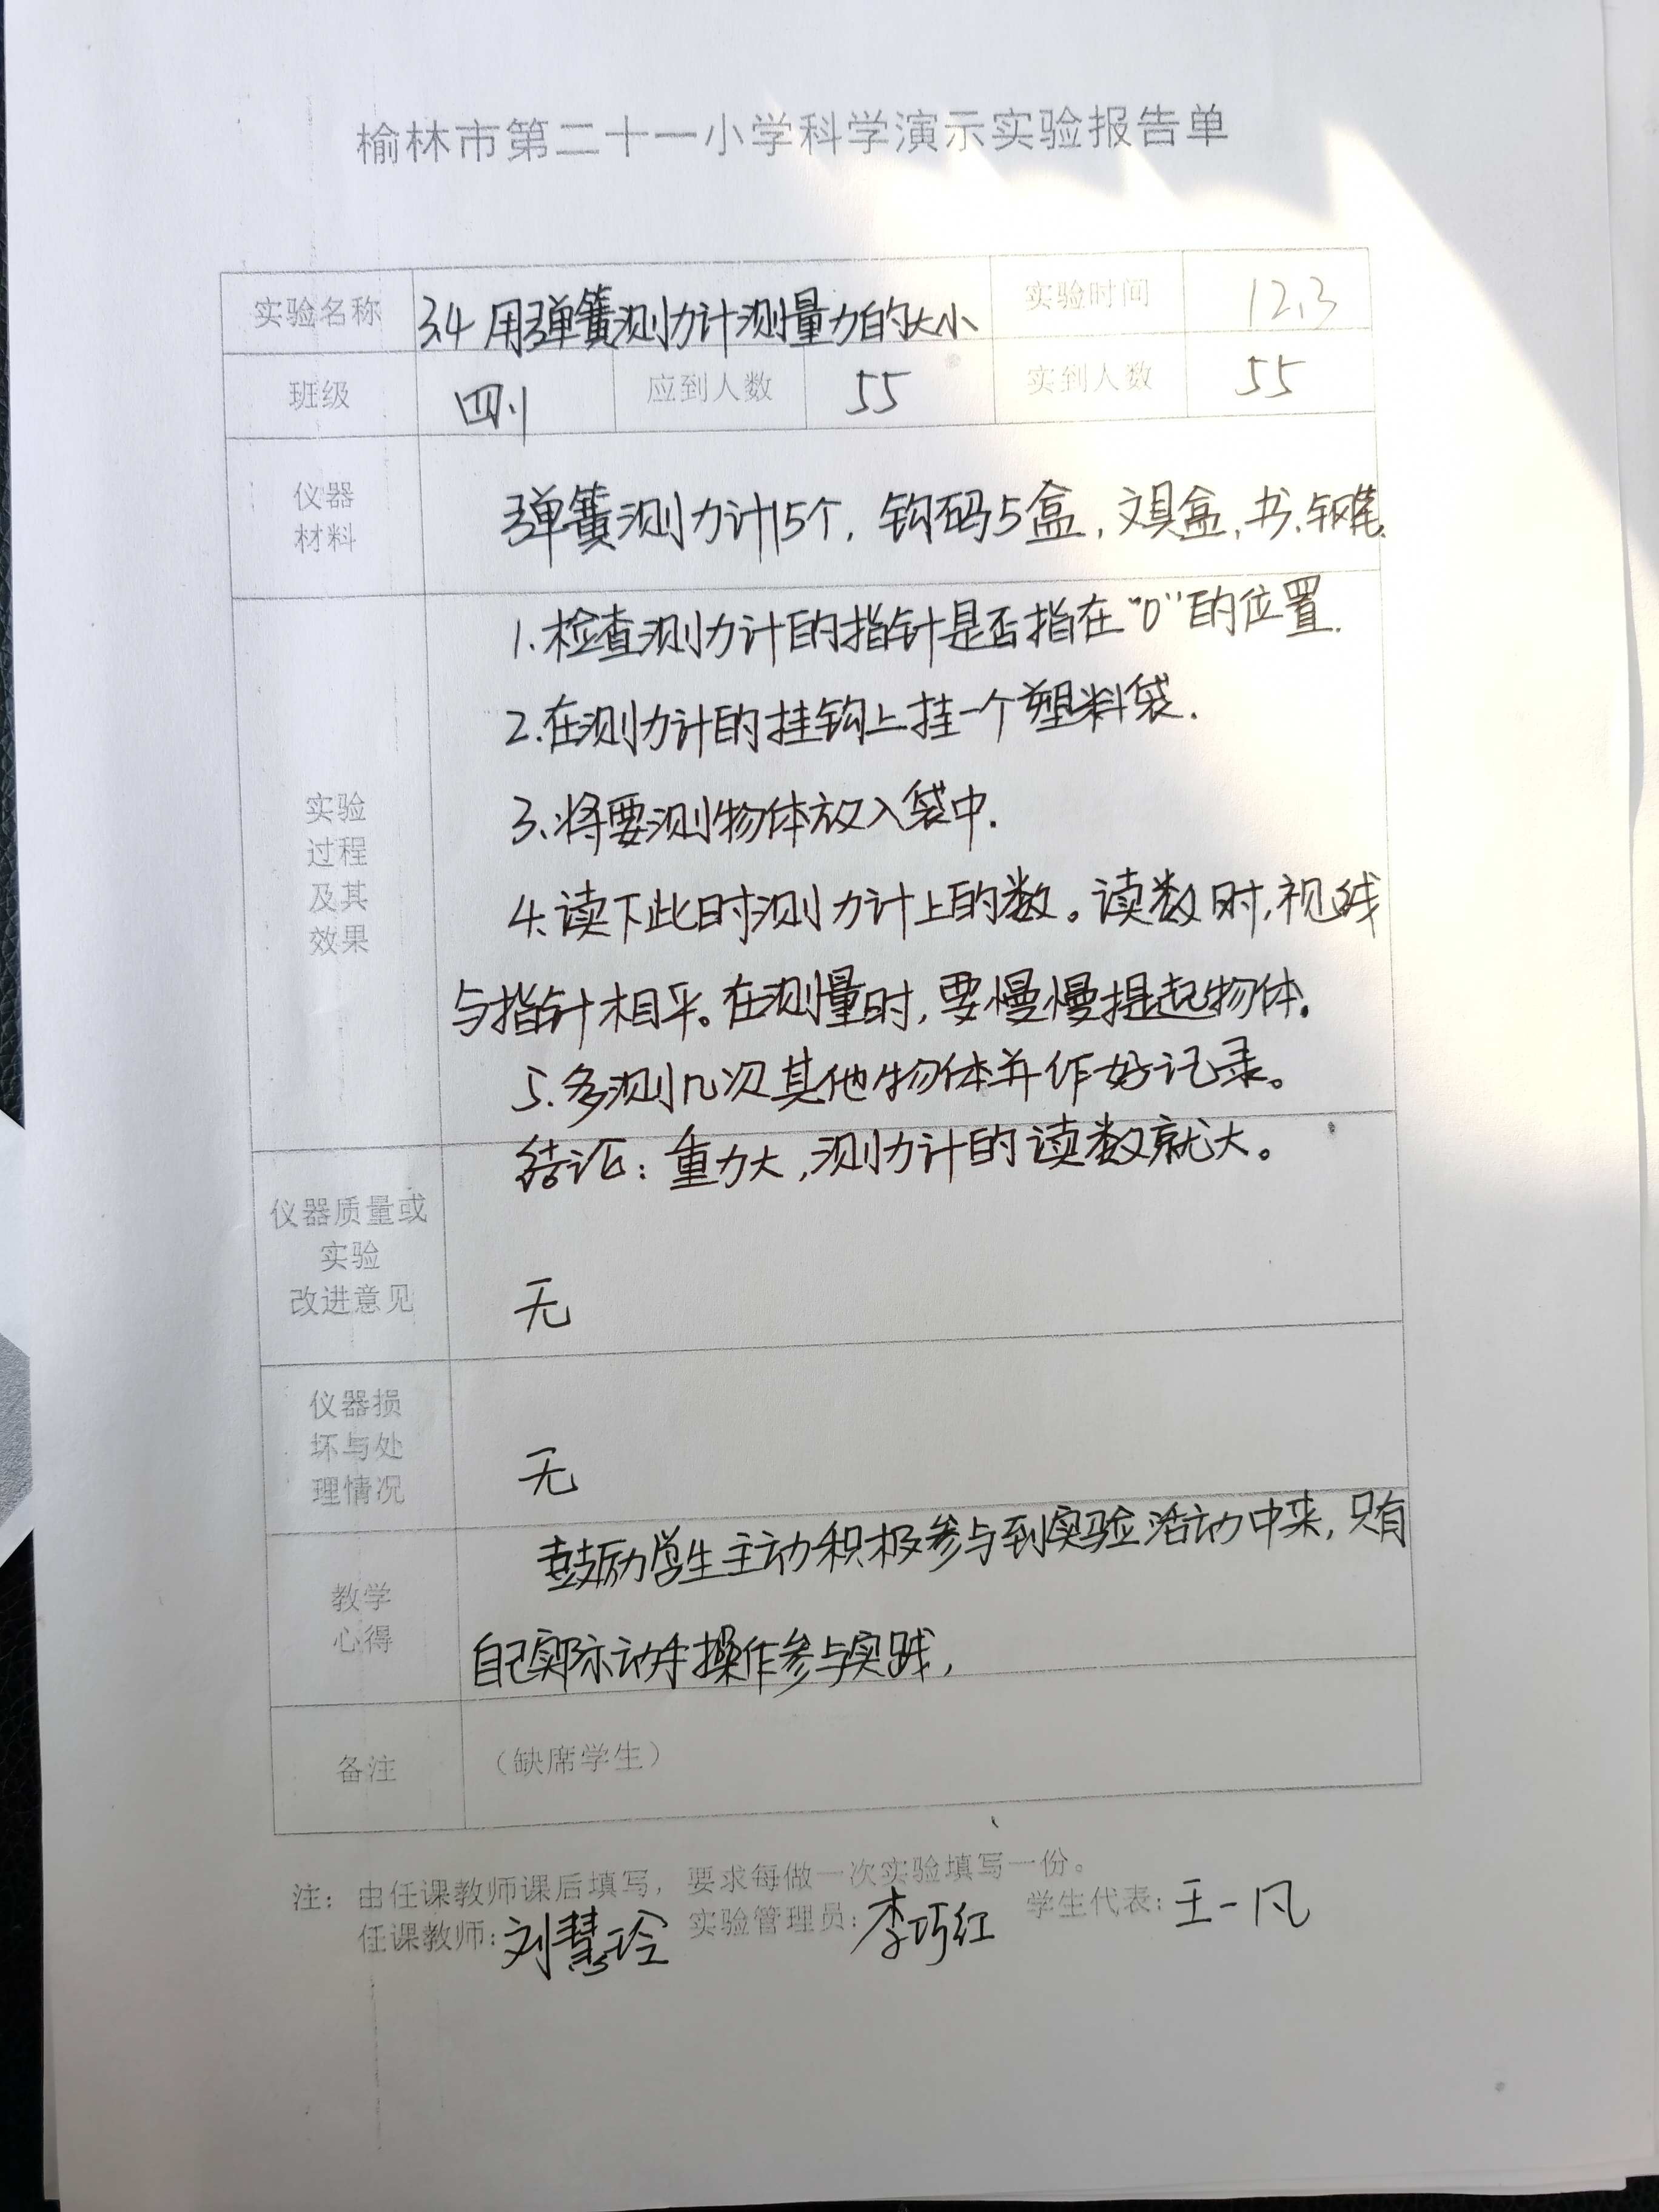 榆林市第二十一小学科学演示实验报告单
实验名称 3.4 用弹簧测力计测量力的大小 实验时间 12.3
班级 四.1 应到人数 55 实到人数 55
仪器
材料
弹簧测力计15个, 钩码5盒, 文具盒, 书, 钢笔.
实验
过程
及其
效果
1.检查测力计的指针是否指在“0”的位置.
2.在测力计的挂钩上挂一个塑料袋.
3.将要测物体放入袋中.
4.读下此时测力计上的数。读数时,视线
与指针相平。在测量时,要慢慢提起物体.
5.多测几次其他物体并作好记录。
结论:重力大,测力计的读数就大。
仪器质量或
实验
改进意见
无
仪器损
坏与处
理情况
无
教学
心得
鼓励学生主动积极参与到实验活动中来,只有
自己实际动手操作参与实践,
备注 (缺席学生)
注: 由任课教师课后填写, 要求每做一次实验填写一份。
任课教师: 刘慧玲 实验管理员: 李巧红 学生代表: 王一凡